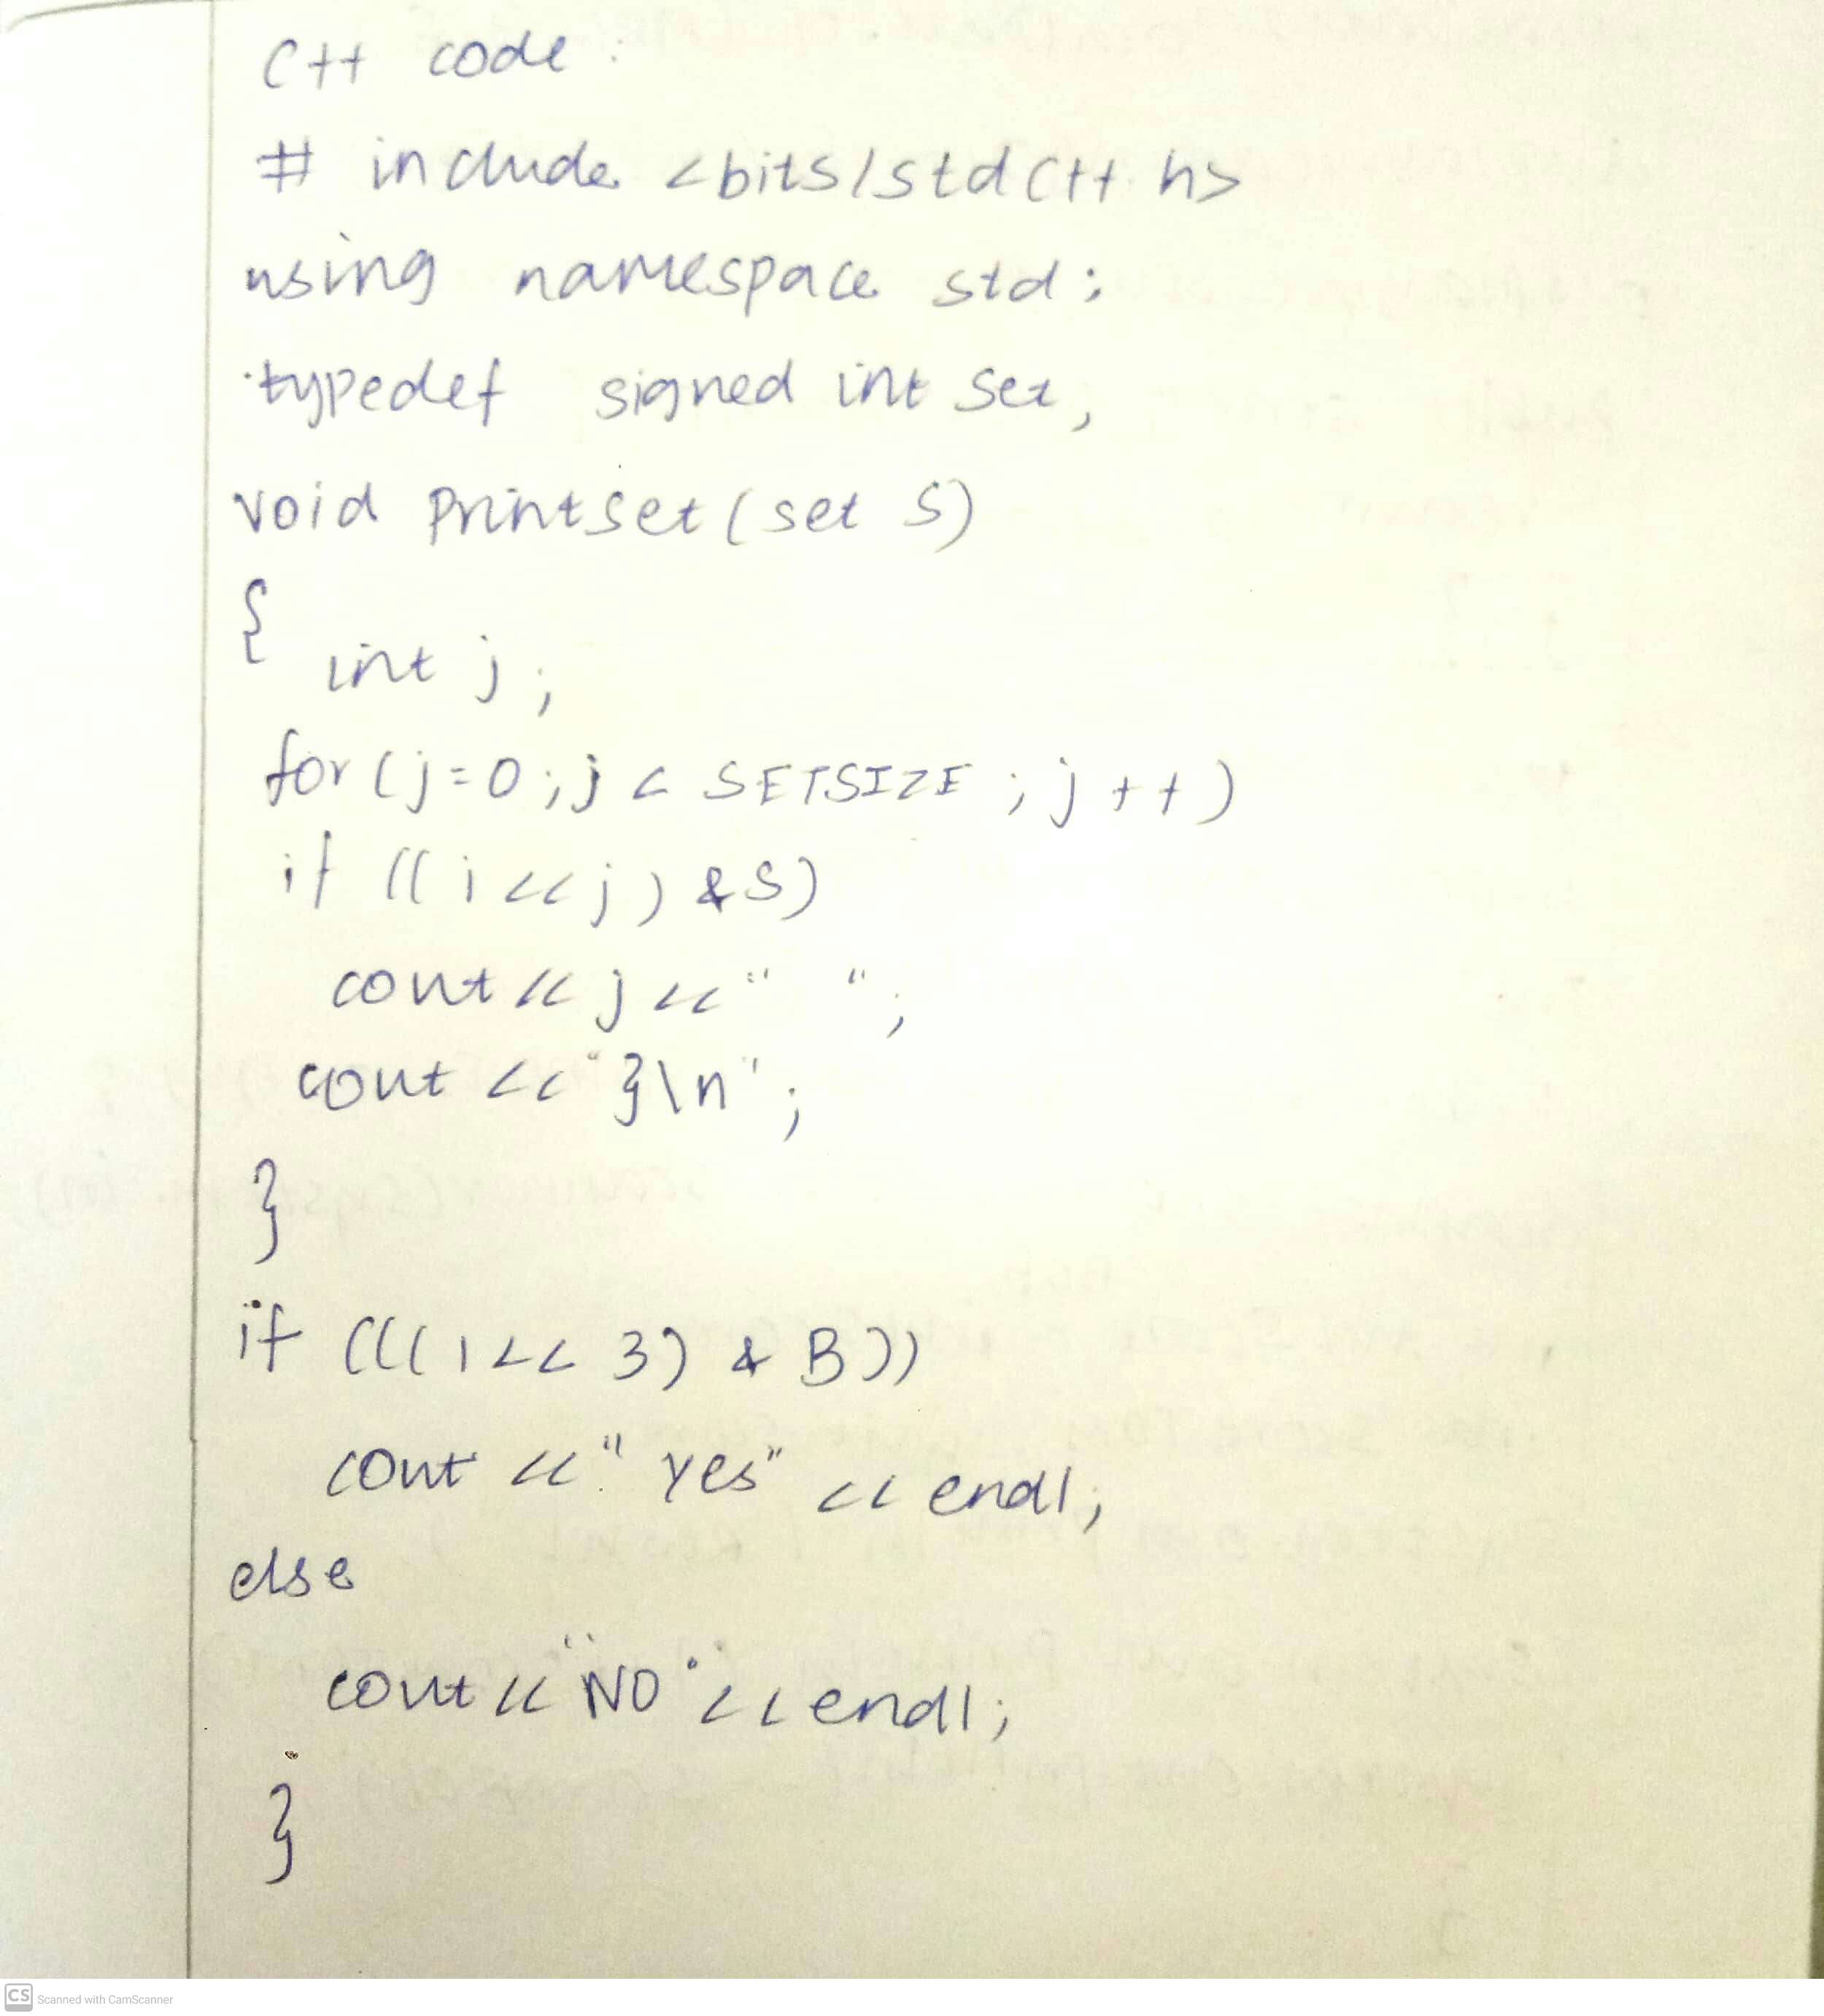 C++ code :
# include <bits/stdc++.h>
using namespace std;
typedef signed int set;
void printset (set S)
{
int j;
for (j=0;j < SETSIZE ; j++)
if ((i<<j) & S)
cout << j << " ";
cout << "}\n";
}
if (((1<< 3) & B))
cout << " yes" << endl;
else
cout << "NO" << endl;
}
CS Scanned with CamScanner